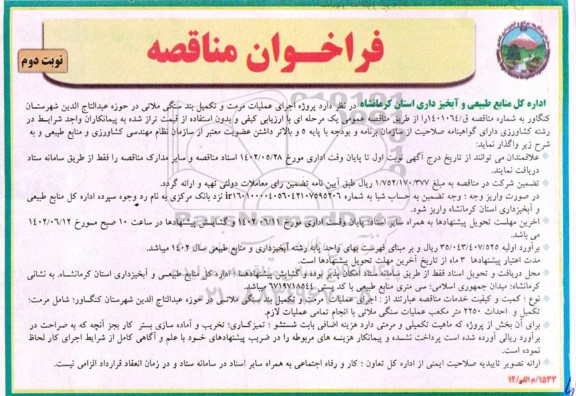 فراخـوان مناقصه
نوبت دوم
اداره کل منابع طبیعی و آبخیز داری استان کرمانشاه در نظر دارد پروژه اجرای عملیات مرمت و تکمیل بند سنگی ملاتی در حوزه عبدالتاج الدین شهرستان
کنگاور به شماره مناقصه ق/۱۴۰۱۰۶۴را از طریق مناقصه عمومی یک مرحله ای با ارزیابی کیفی و بدون استفاده از قیمت تراز شده به پیمانکاران واجد شرایط در
رشته کشاورزی دارای گواهینامه صلاحیت از سازمان برنامه و بودجه با پایه ۵ و بالاتر داشتن عضویت معتبر از سازمان نظام مهندسی کشاورزی و منابع طبیعی و به
شرح زیر واگذار نماید:
علاقمندان می توانند از تاریخ درج آگهی نوبت اول تا پایان وقت اداری مورخ ۱۴۰۲/۰۵/۲۸ اسناد مناقصه و سایر مدارک مناقصه را فقط از طریق سامانه ستاد
دریافت نمایند.
تضمین شرکت در مناقصه به مبلغ ۱/۷۵۲/۱۷۰/۳۷۷ ریال طبق آیین نامه تضمین رای معاملات دولتی تهیه و ارائه گردد.
در صورت واریز وجه ؛ وجه تضمین به حساب شبا به شماره ir۱۶۰۱۰۰۰۰۴۰۵۶۰۴۲۱۰۷۵۹۵۲۰۶ نزد بانک مرکزی به نام رد وجوه سپرده اداره کل منابع طبیعی
و آبخیزداری استان کرمانشاه واریز شود.
آخرین مهلت تحویل پیشنهادها به همراه سایر اسناد: پایان وقت اداری مورخ ۱۴۰۲/۰۶/۱۱ و گشایش پیشنهادها در ساعت ۱۰ صبح مـورخ ۱۴۰۲/۰۶/۱۲
می باشد.
برآورد اولیه ۳۵/۰۴۳/۴۰۷/۵۲۵ ریال و بر مبنای فهرست بهای واحد پایه رشته آبخیزداری و منابع طبیعی سال ۱۴۰۲ میباشد.
مدت اعتبار پیشنهادها ۳ ماه از تاریخ آخرین مهلت تحویل پیشنهادها است.
محل دریافت و تحویل اسناد فقط از طریق سامانه ستاد امکان پذیر بوده و گشایش پیشنهادهـا : اداره کل منابع طبیعـی و آبخیزداری استان کرمانشاه، به نشانی
کرمانشاه: میدان جمهوری اسلامی؛ سی متری منابع طبیعی با کد پستی ۶۷۱۹۷۱۸۵۴۴ میباشد.
نوع ؛ کمیت و کیفیت خدمات مناقصه عبارتند از : اجرای عملیات مرمت و تکمیل بند سنگی ملاتی در حوزه عبدالتاج الدین شهرستان کنگـاور؛ شامل مرمت؛
تکمیل و احداث ۲۲۵۰ متر مکعب عملیات سنگی ملاتی با انجام تمامی عملیات لازم.
برای آن بخش از پروژه که ماهیت تکمیلی و مرمتی دارد هزینه اضافی بابت شستشو ؛ تمیزکاری؛ تخریب و آماده سازی بستر کار بجز آنچه که به صراحت در
برآورد ریالی آورده شده است پرداخت نشـده و پیمانکار هزینـه های مربوطه را در ضریب پیشنهادهای خـود با علم و آگاهی کامل از شرایط اجرای کار لحاظ
نموده است.
ارائه تصویر تاییدیه صلاحیت ایمنی از اداره کل تعاون ؛ کار و رفاه اجتماعی به همراه سایر اسناد در سامانه ستاد و در زمان انعقاد قرارداد الزامی نیست.
۱۵۳۳/م الف/۱۲